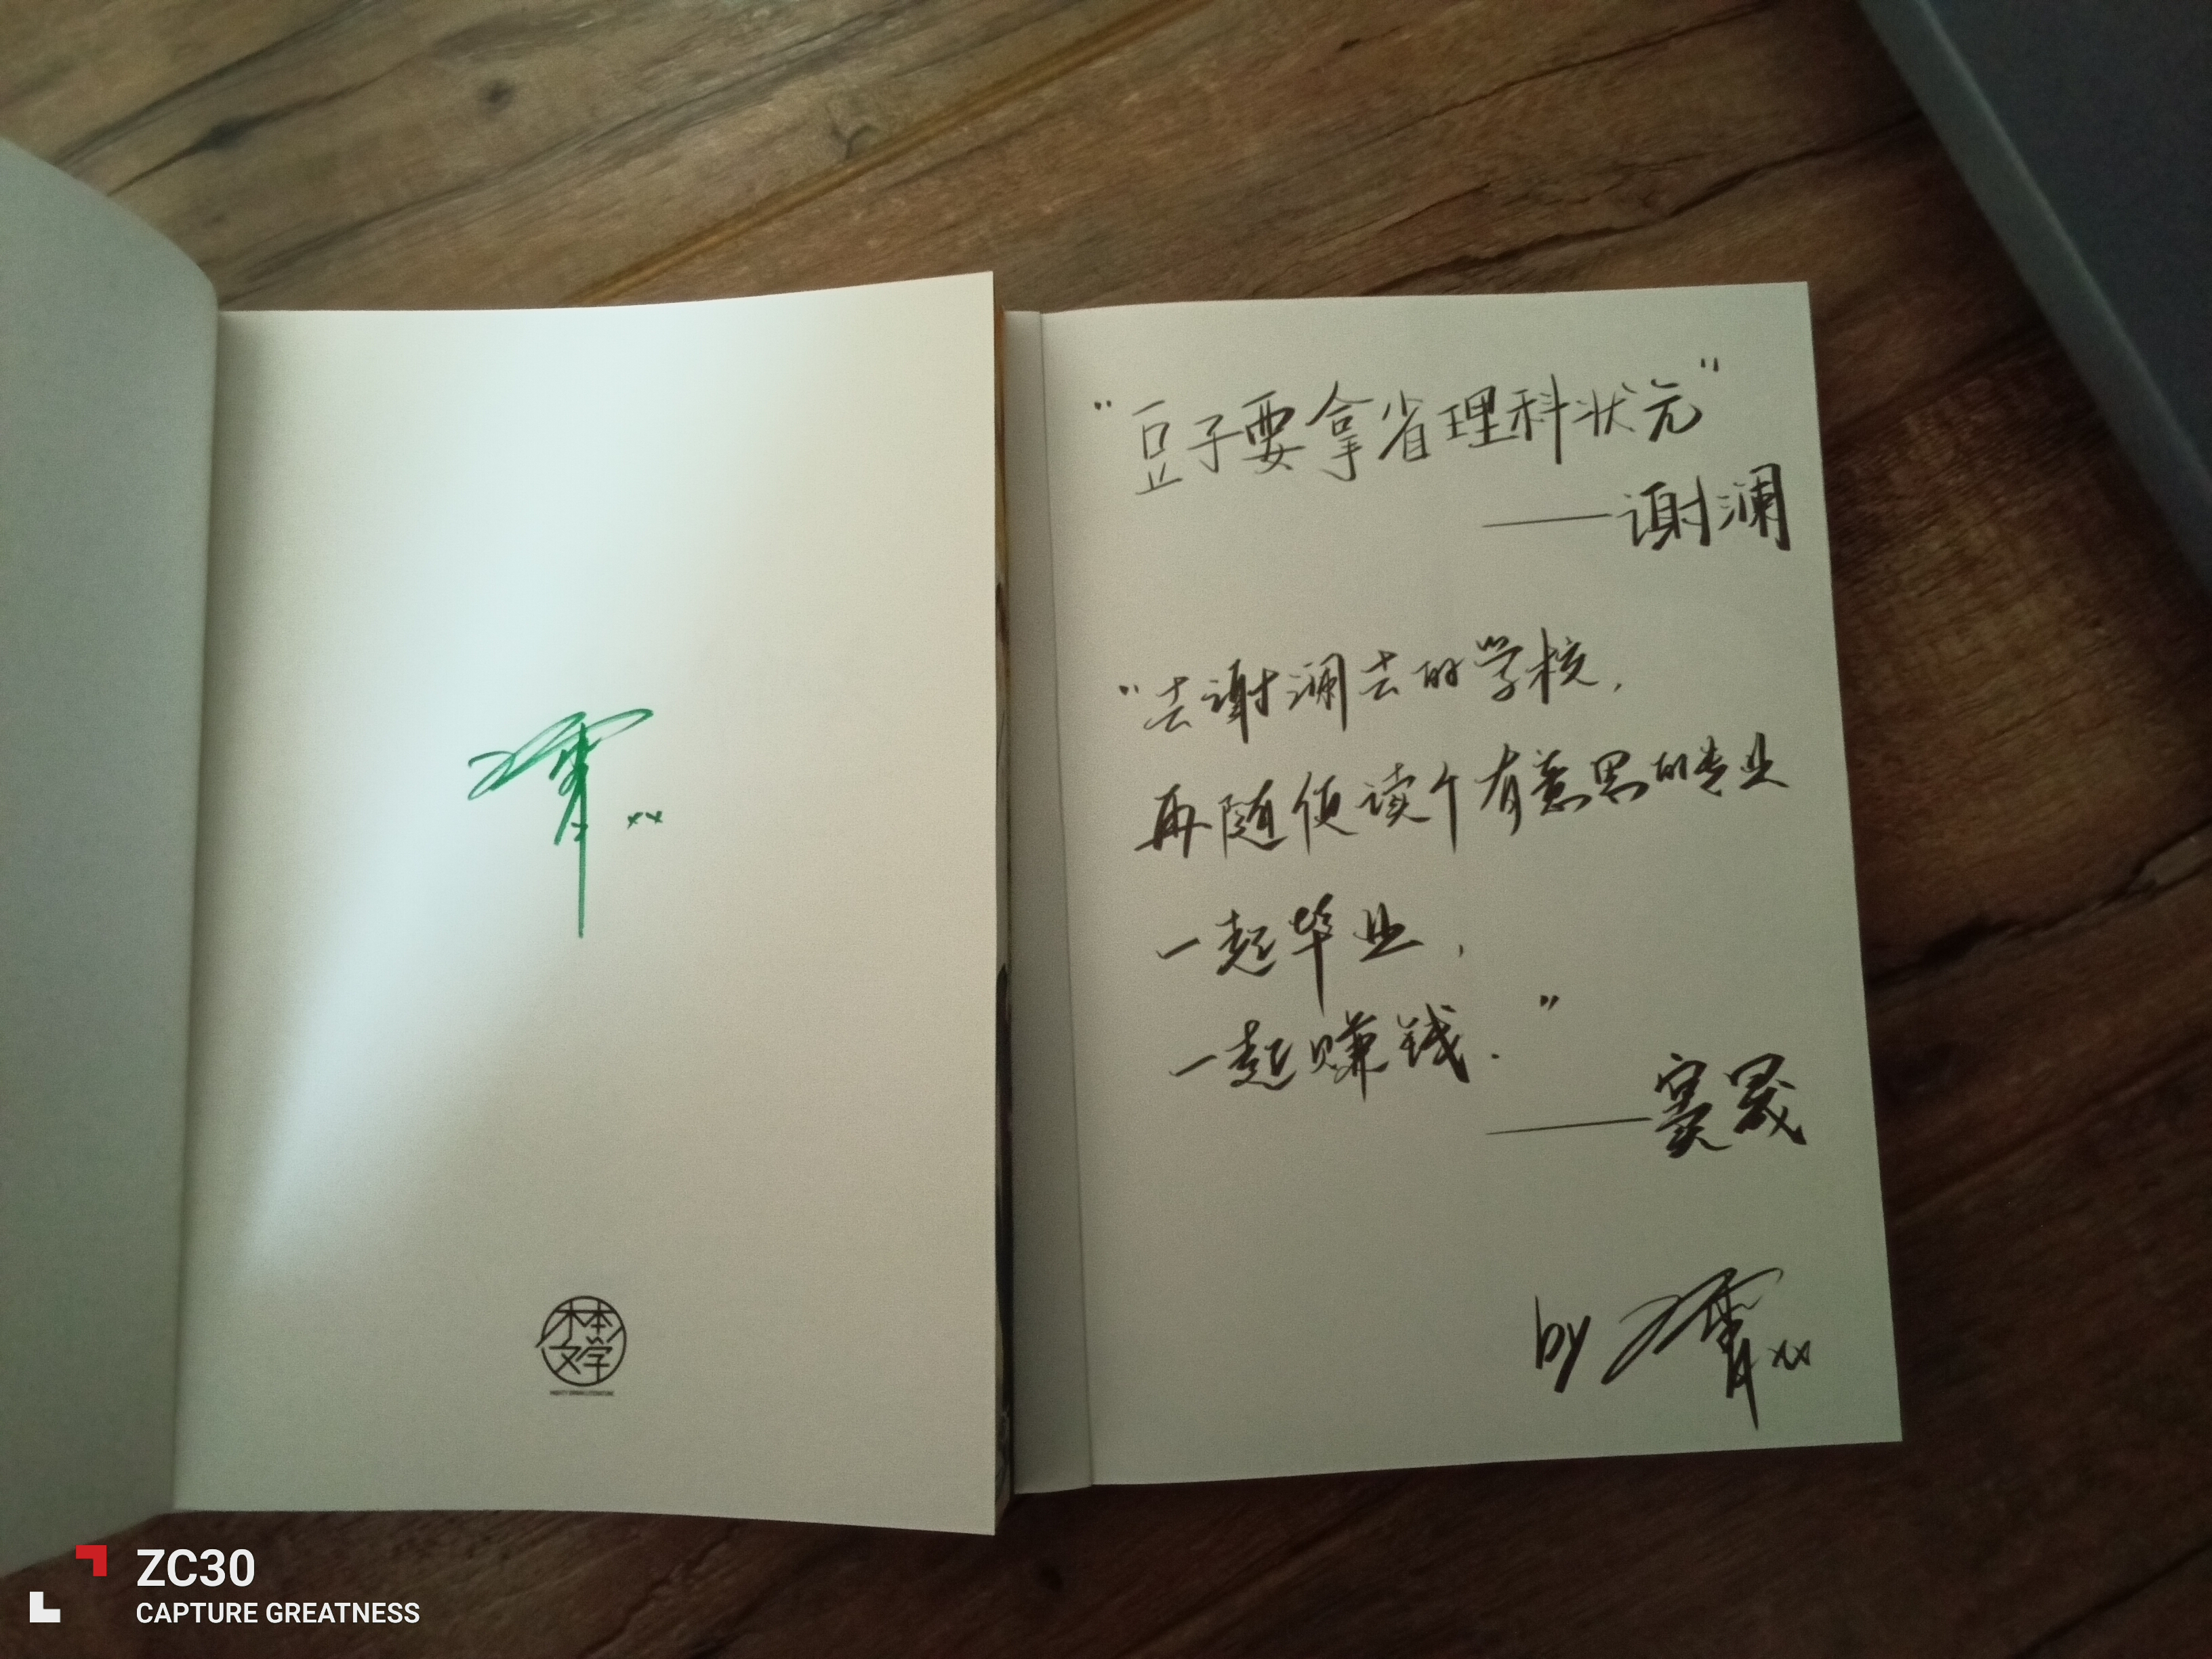 xx
木本
文学
"豆子要拿省理科状元"
——谢澜
"去谢澜去的学校,
再随便读个有意思的专业
一起毕业,
一起赚钱."
——窦晟
by xx
ZC30
CAPTURE GREATNESS